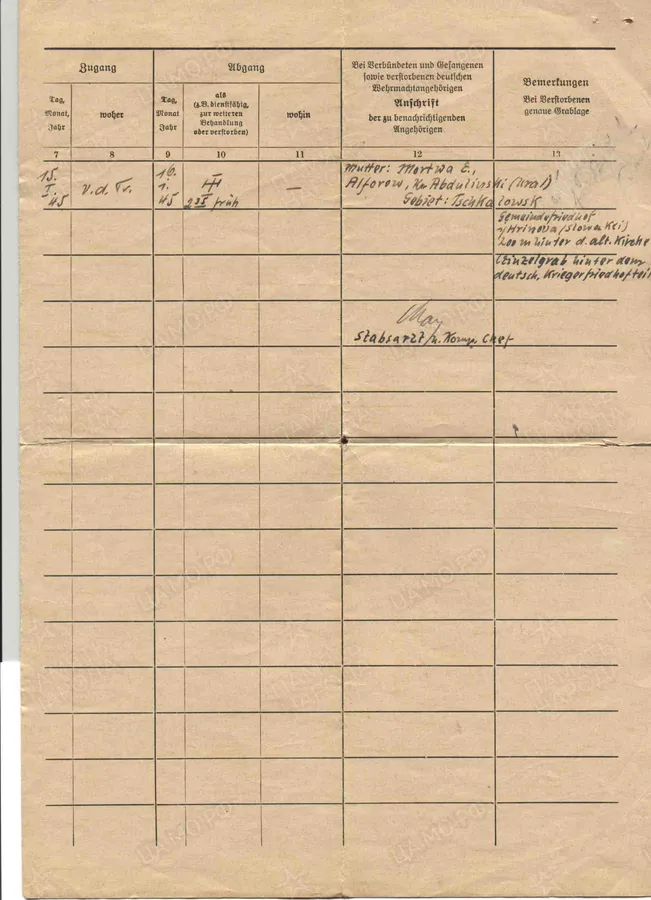 Zugang
Abgang
Bei Verbündeten und Gefangenen
sowie verstorbenen deutschen
Wehrmachtangehörigen
Anschrift
der zu benachrichtigenden
Angehörigen
Bemerkungen
Bei Verstorbenen
genaue Grablage
Tag,
Monat,
Jahr
woher
Tag,
Monat
Jahr
als
(z.B. dienstfähig,
zur weiteren
Behandlung
oder verstorben)
wohin
7 8 9 10 11 12 13
15.
I.
45
v. d. Tr.
16.
1.
45
2 35 früh
—
Mutter: Mortwa E.,
Alforow, Abdulinski (Ural)
Gebiet: Tschkalowsk
Gemeindefriedhof
Hrinova (Slowakei)
200 m hinter d. alt. Kirche
(Einzelgrab hinter dem
deutsch. Kriegerfriedhofteil
Stabsarzt u. Komp. Chef
ЦАМО.РФ
ПАМЯТЬ
НАРОДА